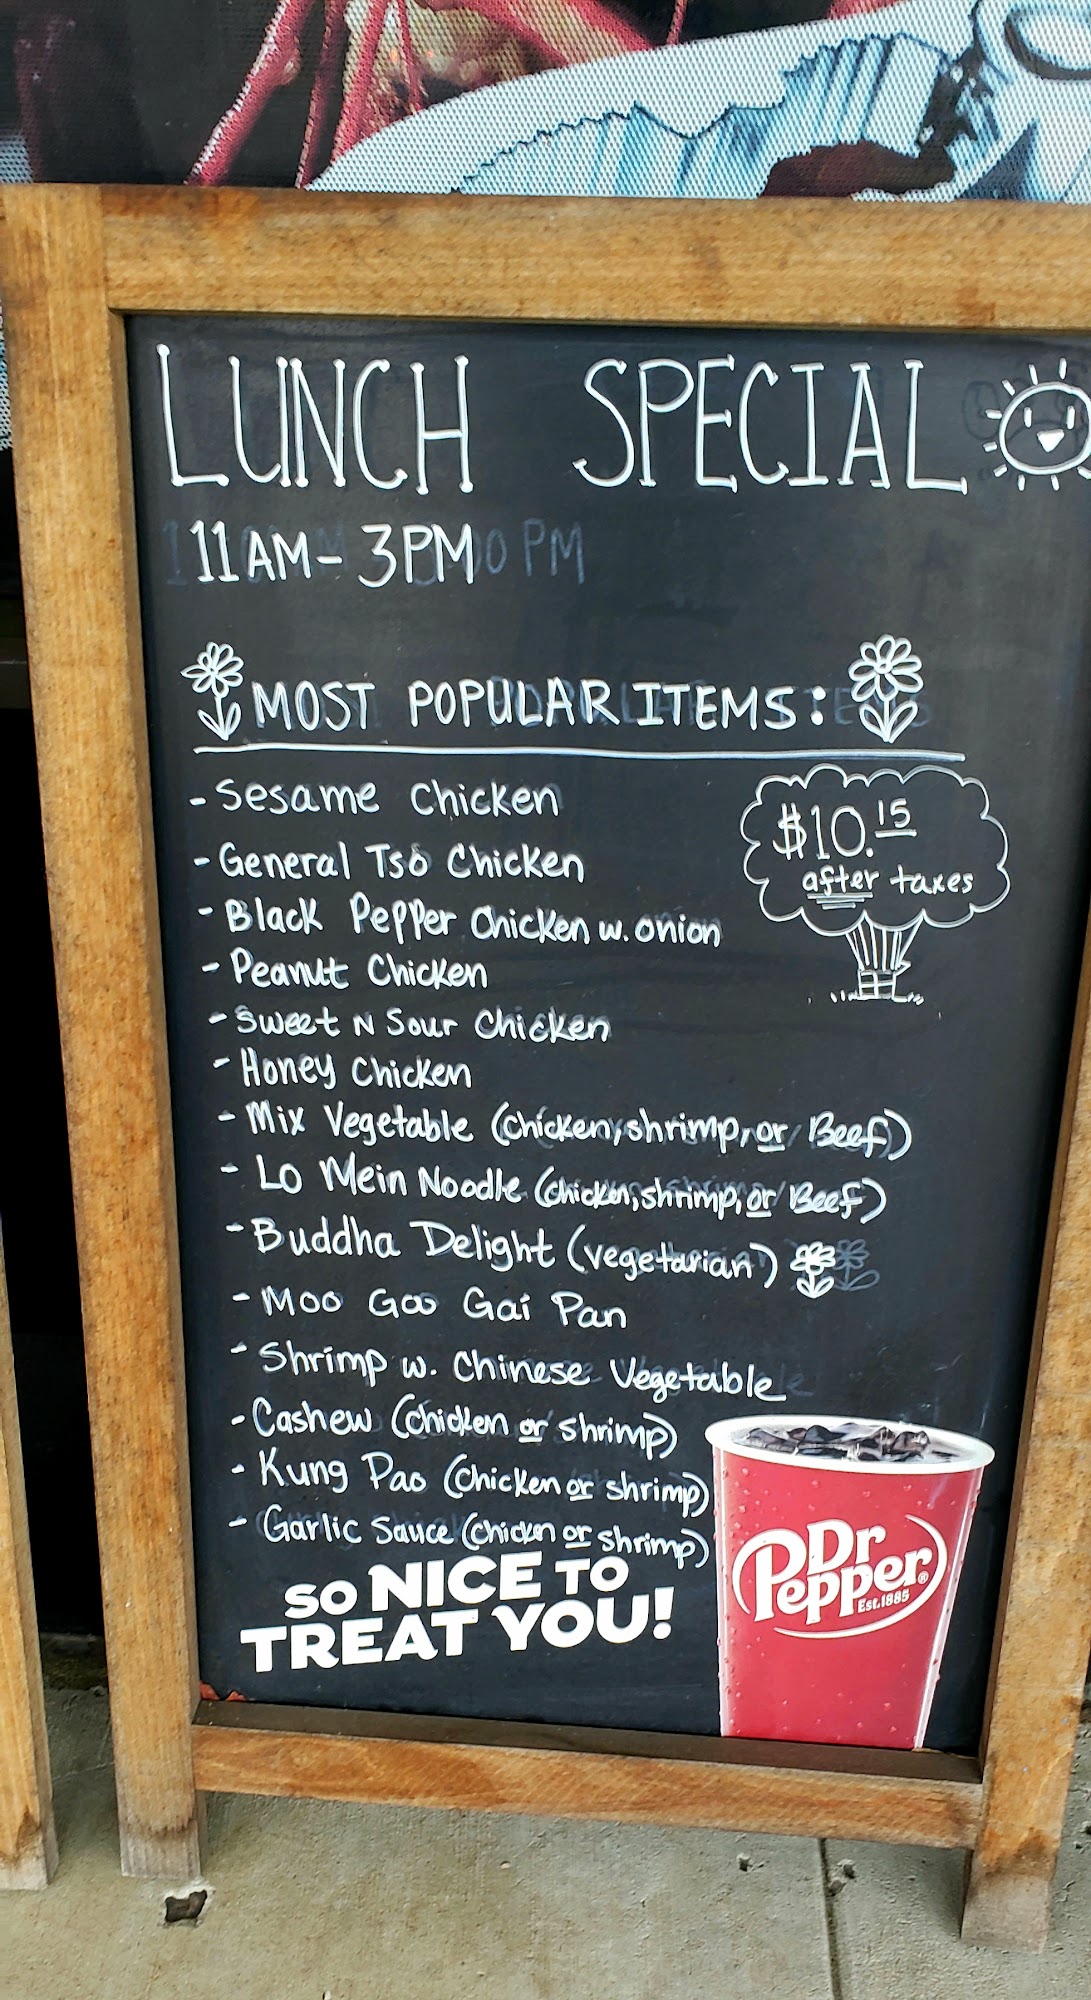 LUNCH SPECIAL
11AM- 3PM
MOST POPULAR ITEMS:
- Sesame Chicken
$10.15
after taxes
- General Tso Chicken
- Black Pepper Chicken w. onion
- Peanut Chicken
- Sweet N Sour Chicken
- Honey Chicken
- Mix Vegetable (Chicken, shrimp, or Beef)
- Lo Mein Noodle (Chicken, shrimp, or Beef)
- Buddha Delight (vegetarian)
- Moo Goo Gai Pan
- Shrimp w. Chinese Vegetable
- Cashew (Chicken or shrimp)
- Kung Pao (Chicken or shrimp)
- Garlic Sauce (Chicken or shrimp)
SO NICE TO
TREAT YOU!
Dr
Pepper®
Est.1885